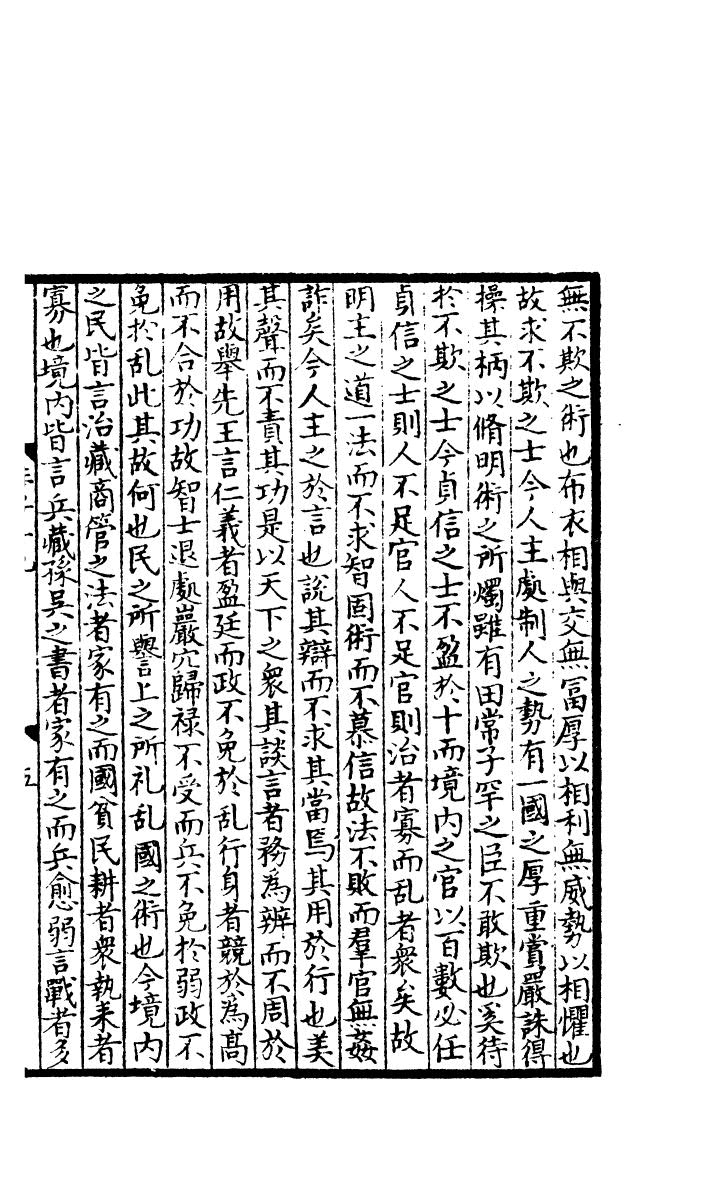 無不欺之術也布衣相與交無冨厚以相利無威勢以相懼也
故求不欺之士今人主處制人之勢有一國之厚重賞嚴誅得
操其柄以脩明術之所燭雖有田常子罕之臣不敢欺也奚待
扵不欺之士今貞信之士不盈於十而境内之官以百數必任
貞信之士則人不足官人不足官則治者寡而乱者衆矣故
明主之道一法而不求智固術而不慕信故法不敗而羣官無姦
詐矣今人主之於言也說其辯而不求其當焉其用於行也美
其聲而不責其功是以天下之衆其談言者務為辨而不周於
用故舉先王言仁義者盈廷而政不免於乱行身者競於為高
而不合於功故智士退處巖穴歸禄不受而兵不免扵弱政不
免扵乱此其故何也民之所譽上之所礼乱國之術也今境内
之民皆言治藏商管之法者家有之而國貧民耕者衆執耒者
寡也境内皆言兵藏孫吴之書者家有之而兵愈弱言戰者多
五